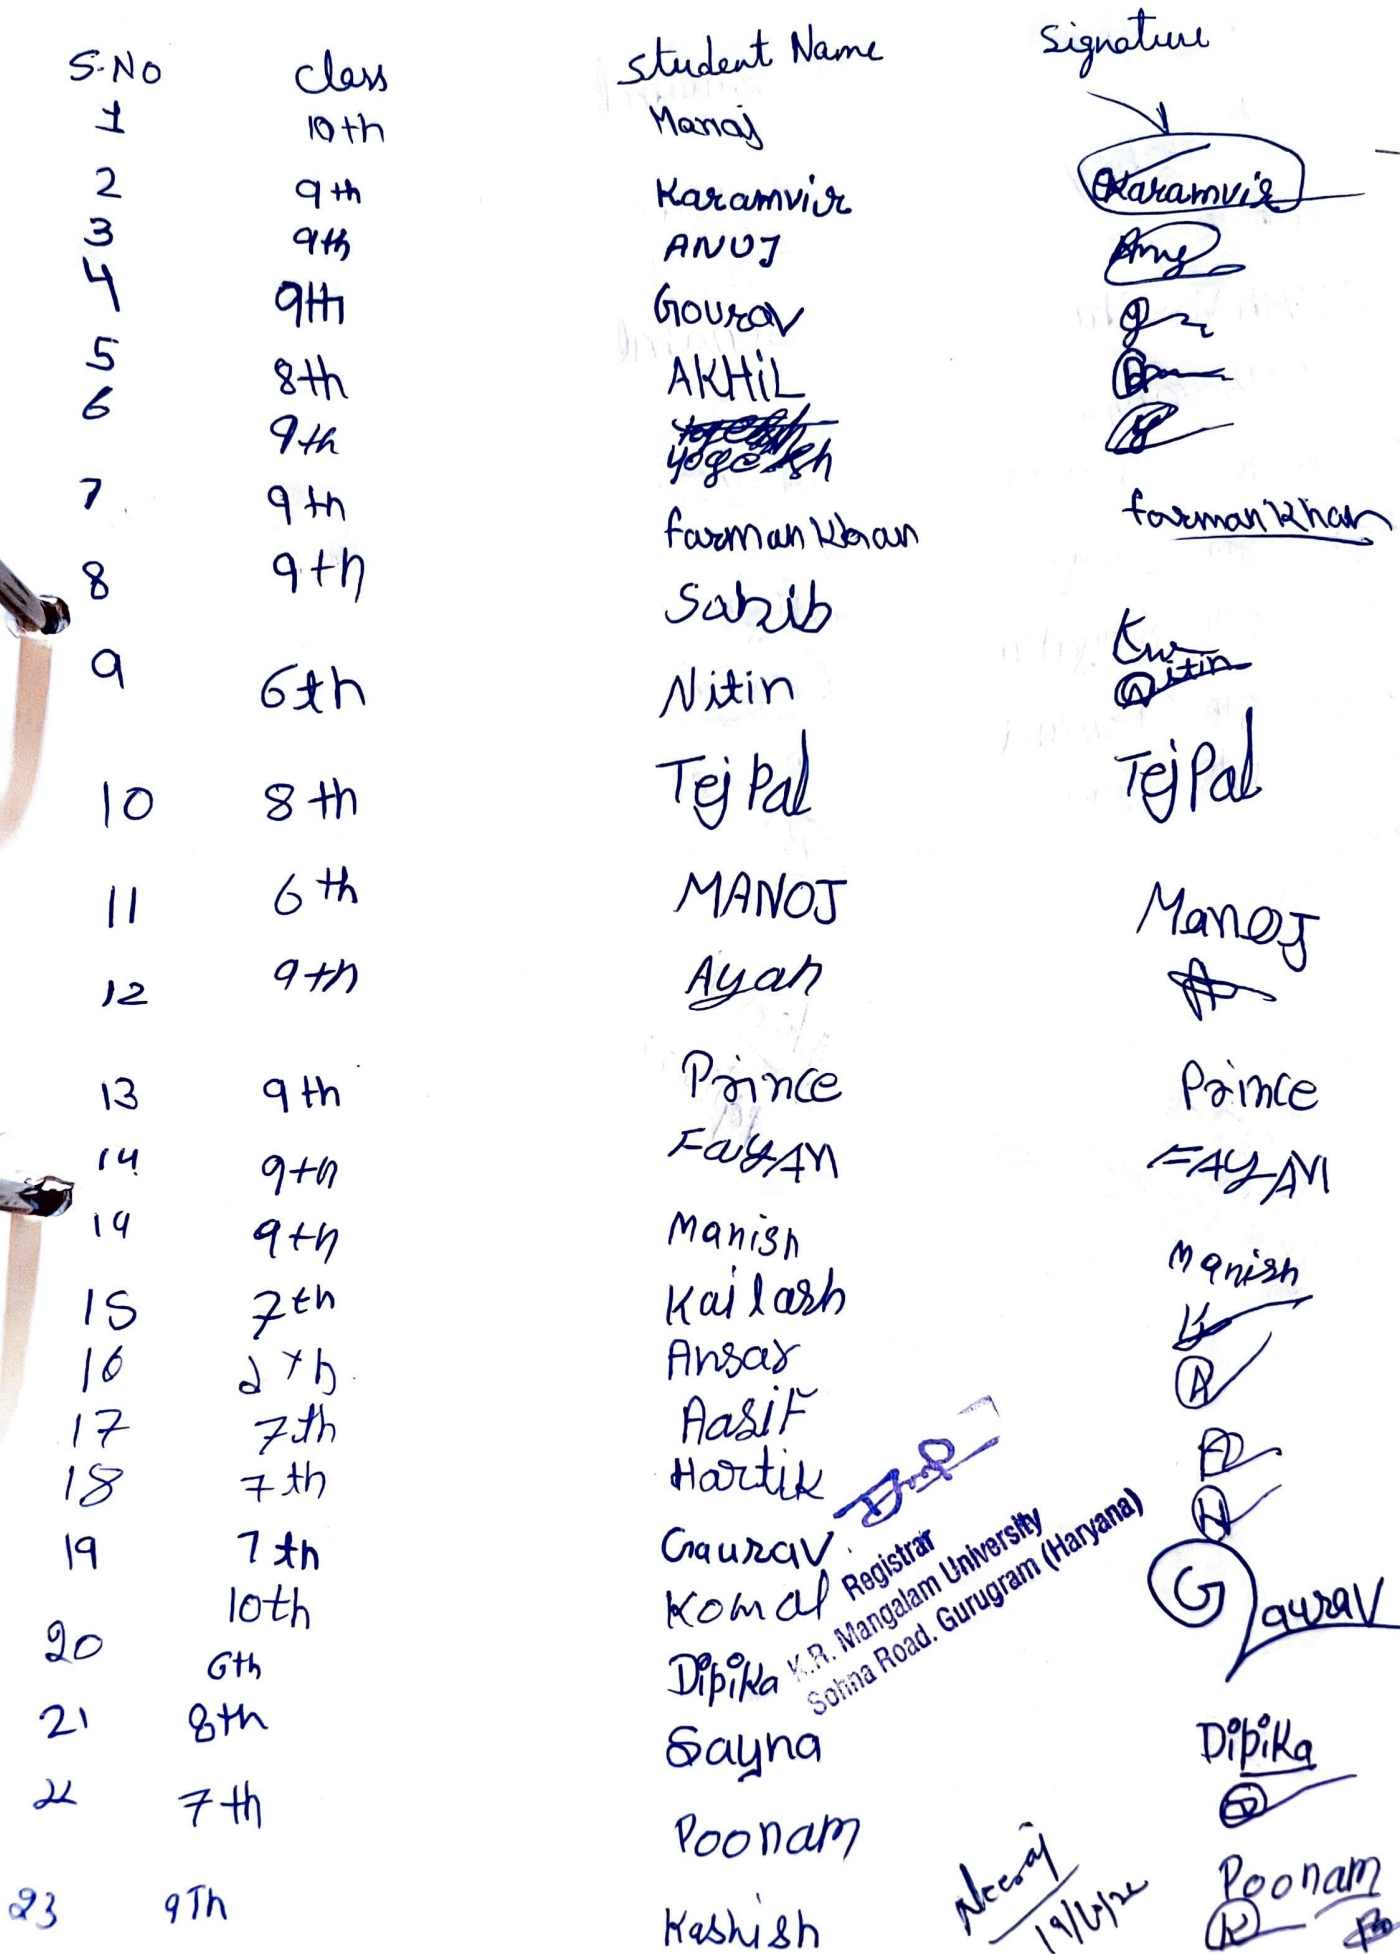 S.No Class Student Name Signature
1 10th Manoj
2 9th Karamvir Karamvir
3 9th ANUJ Anuj
4 9th Gourav
5 8th AKHiL
6 9th yogesh
7 9th farman Khan farman Khan
8 9th Sahib
9 6th Nitin Nitin
10 8th Tej Pal Tej Pal
11 6th MANOJ Manoj
12 9th Ayan
13 9th Prince Prince
14 9th FayAN FAYAN
14 9th Manish Manish
15 7th Kailash
16 Ansar A
17 7th AasiF
18 7th Hartik H
19 7th Gaurav Gaurav
10th Komal
20 6th Dipika Dipika
21 8th Sayna
22 7th Poonam Poonam
23 9Th Kashish K
Registrar
K.R. Mangalam University
Sohna Road. Gurugram (Haryana)
Neeraj